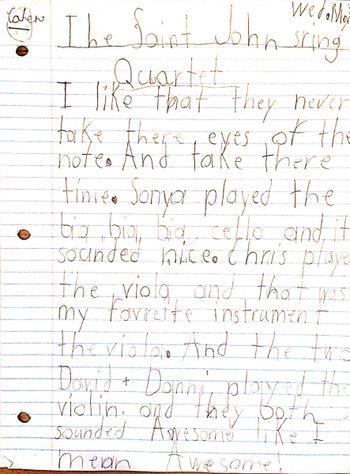 Wed. May
Cohen
The Saint John sring
Quartet
I like that they never
take there eyes of the
note. And take there
time. Sonya played the
big, big, big cello and it
sounded nice. Chris playe
the viola and that was
my favreite instrument
the viola. And the two
David + Danni played the
violin. and they both
sounded Awesome like I
mean Awesome!